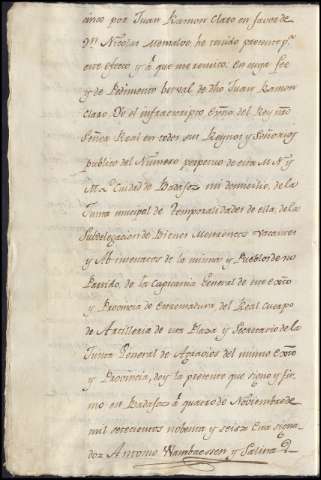 cinco por Juan Ramon Claro en favor de
Dn. Nicolas Memaloe, he tenido presente pa.
este efecto y á que me remito. En cuya fee
y de Pedimento berval de dho Juan Ramon
Claro. Yo el infraescripto Esno. del Rey nro
Señor Real en todos sus Reynos y Señorios
publico del Numero perpetuo de esta M. N. y
M. L. Ciudad de Badajoz mi domicilio, de la
Junta municipal de Temporalidades de ella, de la
Subdelegacion de Bienes Mostrencos Vacantes
y Abintestatos de la misma y Pueblos de su
Partido, de la Capitania General de este Exto
y Provincia de Extremadura, del Real Cuerpo
de Artilleria de esta Plaza y Secretario de la
Junta General de Agravios del mismo Exto
y Provincia, doy la presente que signo y fir
mo en Badajoz á quatro de Noviembre de
mil setecientos nobenta y seis. Esta signa
do. Antonio Wambaessen y Salina